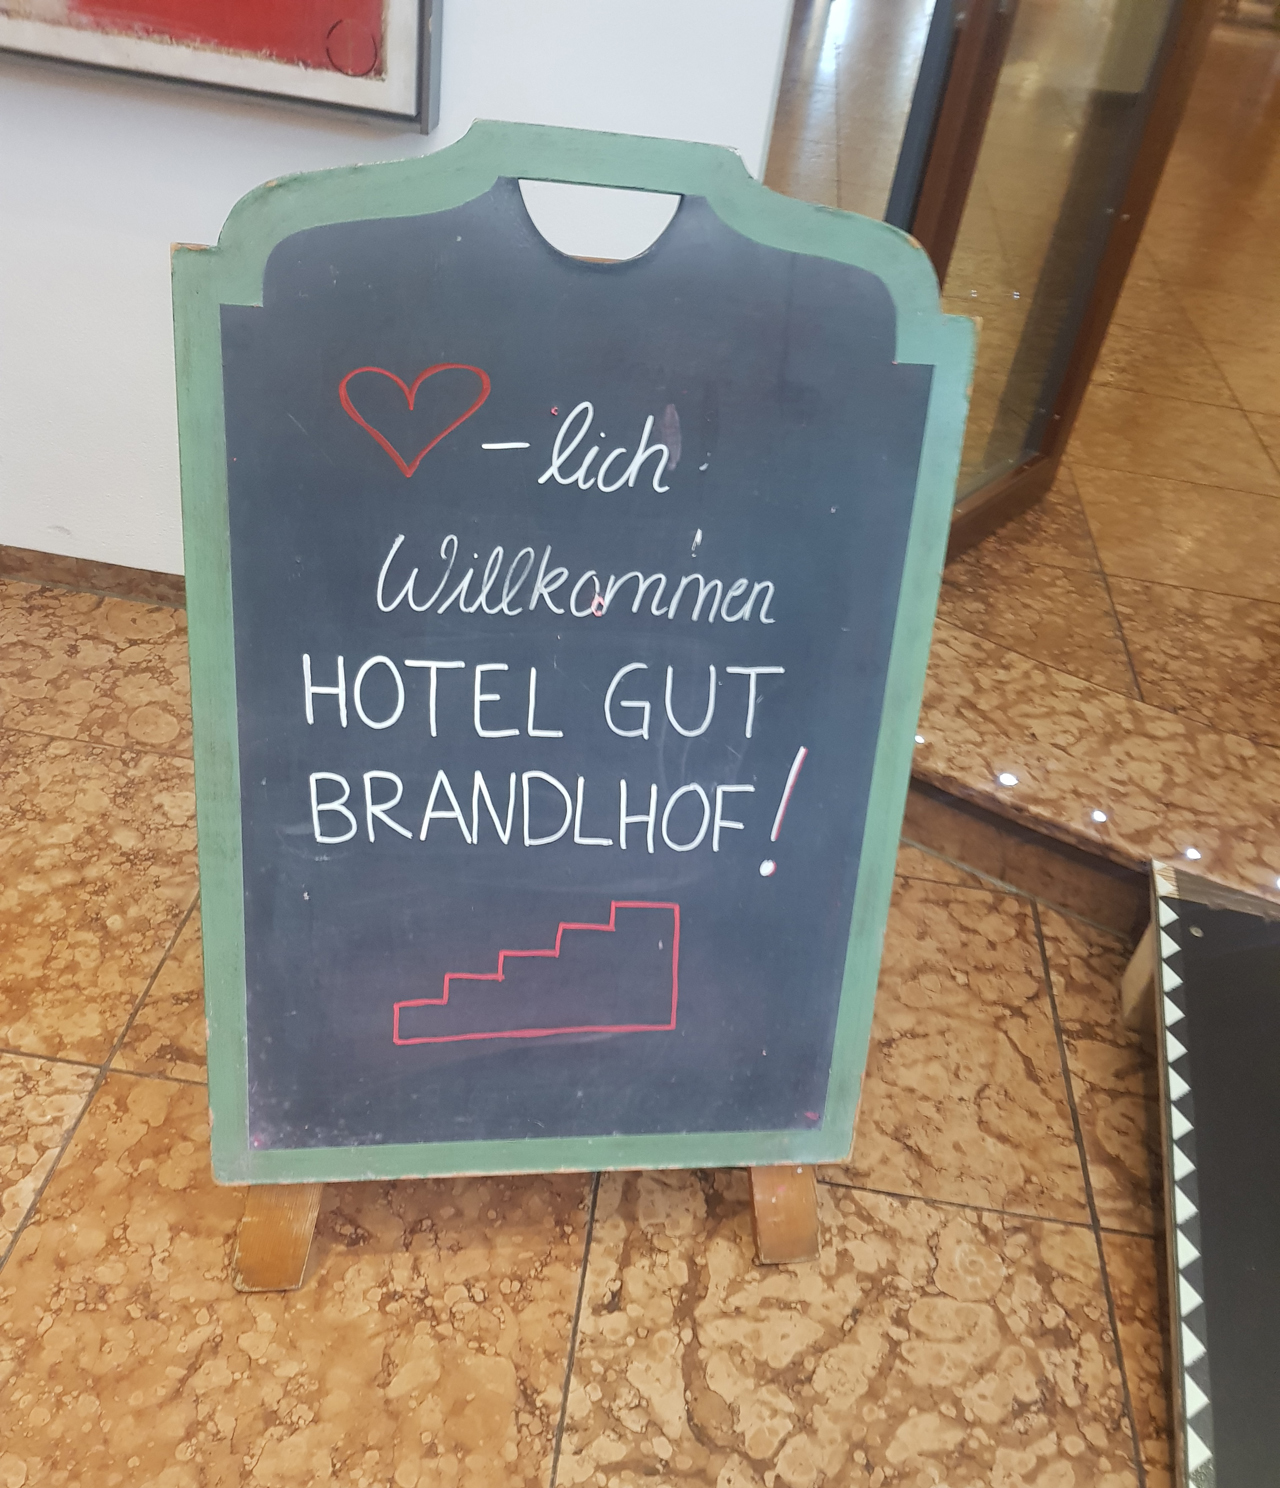 -lich
Willkommen
HOTEL GUT
BRANDLHOF!